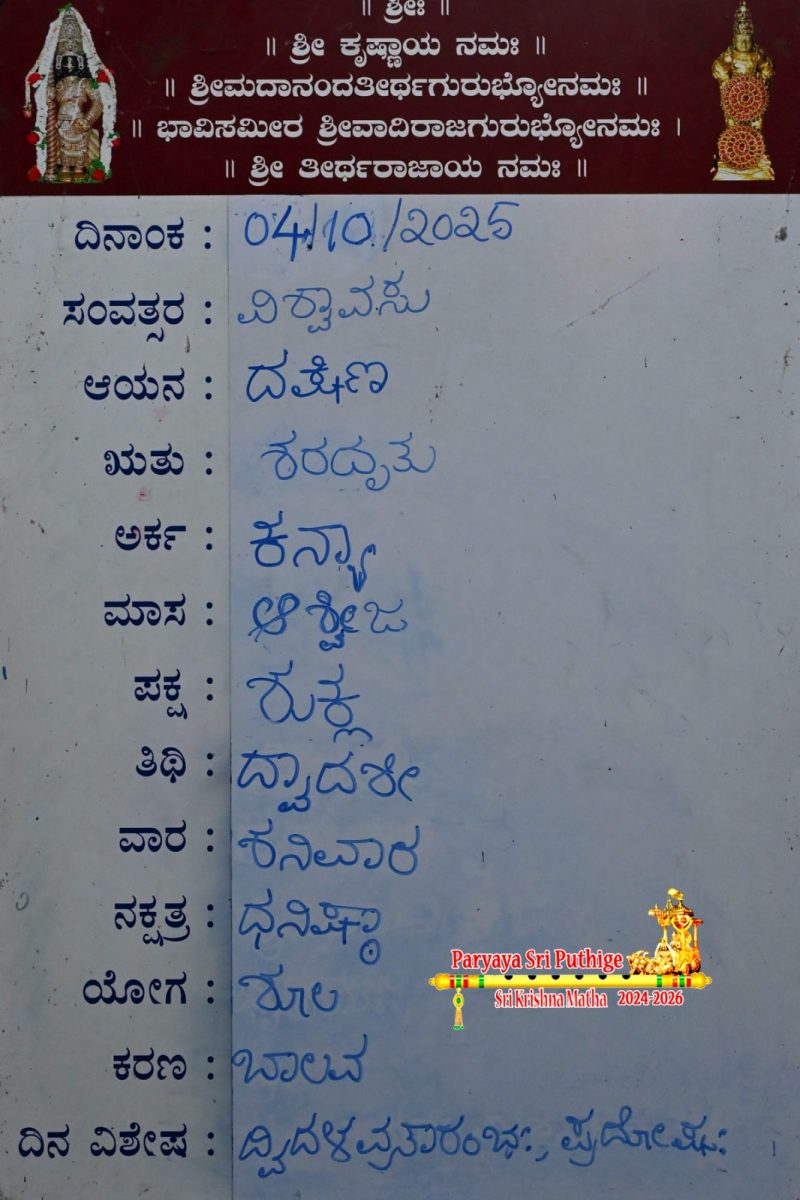 ॥ ಶ್ರೀಃ ॥
॥ ಶ್ರೀ ಕೃಷ್ಣಾಯ ನಮಃ ॥
॥ ಶ್ರೀಮದಾನಂದತೀರ್ಥಗುರುಭ್ಯೋನಮಃ ॥
॥ ಭಾವಿಸಮೀರ ಶ್ರೀವಾದಿರಾಜಗುರುಭ್ಯೋನಮಃ ।
॥ ಶ್ರೀ ತೀರ್ಥರಾಜಾಯ ನಮಃ ॥
ದಿನಾಂಕ : 04/10/2025
ಸಂವತ್ಸರ : ವಿಶ್ವಾವಸು
ಆಯನ : ದಕ್ಷಿಣ
ಋತು : ಶರದೃತು
ಅರ್ಕ : ಕನ್ಯಾ
ಮಾಸ : ಆಶ್ವೀಜ
ಪಕ್ಷ : ಶುಕ್ಲ
ತಿಥಿ : ದ್ವಾದಶೀ
ವಾರ : ಶನಿವಾರ
ನಕ್ಷತ್ರ : ಧನಿಷ್ಠಾ
ಯೋಗ : ಶೂಲ
ಕರಣ : ಬಾಲವ
ದಿನ ವಿಶೇಷ : ದ್ವಿದಳವ್ರತಾರಂಭಃ, ಪ್ರದೋಷಃ
Paryaya Sri Puthige
Sri Krishna Matha 2024-2026